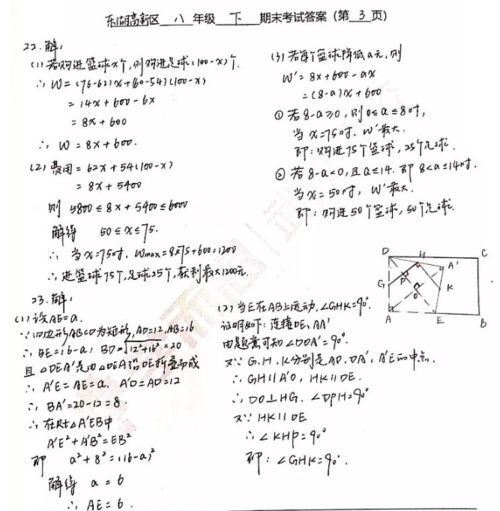 东湖高新区 八 年级 下 期末考试答案(第 3 页)
22.解:
(1)若购进篮球x个,则购进足球(100-x)个.
∴ W=(76-62)x+(60-54)(100-x)
=14x+600-6x
=8x+600
∴ W=8x+600.
(2)费用=62x+54(100-x)
=8x+5400
则 5800≤8x+5400≤6000
解得 50≤x≤75.
∴ 当x=75时, Wmax=8×75+600=1200
∴ 进篮球75个,足球25个,获利最大1200元.
(3)若每个篮球降低a元,则
W'=8x+600-ax
=(8-a)x+600
① 若8-a≥0,则0≤a≤8时,
当x=75时,W'最大.
即:购进75个篮球,25个足球.
② 若8-a<0,且a≤14.即8<a≤14时.
当x=50时, W'最大.
即:购进50个篮球,50个足球.
23.解:
(1)设AE=a.
∵四边形ABCD为矩形,AD=12,AB=16
∴ BE=16-a, BD=√12²+16²=20
且△DEA'是由△DEA沿DE折叠而成
∴ A'E=AE=a. A'D=AD=12
∴ BA'=20-12=8.
∴ 在Rt△A'EB中
A'E²+A'B²=EB²
即 a²+8²=(16-a)²
解得 a=6
∴ AE=6.
(2)当E在AB上运动,∠GHK=90°.
证明如下:连接DE,AA'
由题意可知∠DOA'=90°.
又∵ G.H.K分别是AD.DA'.A'E的中点.
∴ GH∥A'O, HK∥DE.
∴ DO⊥HG. ∠DPH=90°
又∵ HK∥DE
∴ ∠KHP=90°
即:∠GHK=90°.
D
H
C
A'
G
P
K
O
A
E
B